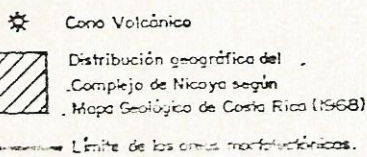 Cono Volcánico
Distribución geográfica del
Complejo de Nicoya según
Mapa Geológico de Costa Rica (1968)
Límite de las areas morfotectónicas.